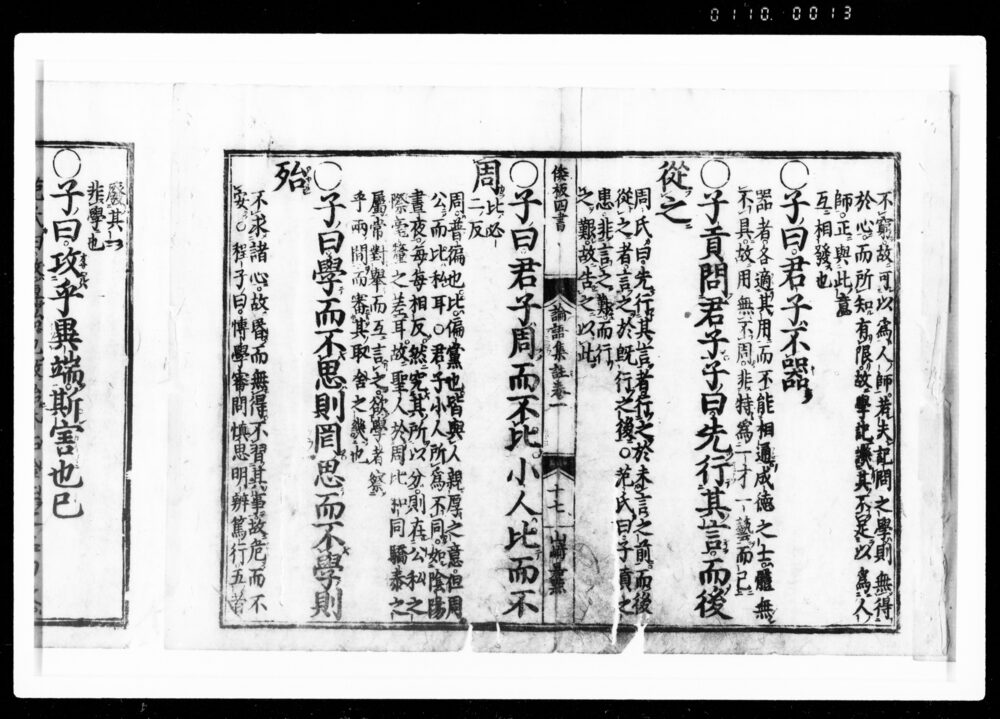 0110.0013
不窮故可以爲人師若夫記問之學則無得
於心而所知有限故學記譏其不足以爲人
師正與此意
互相發也
○子曰君子不器
器者各適其用而不能相通成德之士體無
不具故用無不周非特爲一才一藝而已
○子貢問君子子曰先行其言而後
從之
周氏曰先行其言者行之於未言之前而後
從之者言之於既行之後○范氏曰子貢之
患非言之難而行
之艱故告之以此
倭板四書
論語集註卷一
十七
山崎嘉點
○子曰君子周而不比小人比而不
周
周普偏也比偏黨也皆與人親厚之意但周
公而比私耳○君子小人所爲不同如陰陽
晝夜每每相反然究其所以分則在公私之
際毫釐之差耳故聖人於周比和同驕泰之
屬常對舉而互言之欲學者察
乎兩間而審其取舍之幾也
○子曰學而不思則罔思而不學則
殆
不求諸心故昏而無得不習其事故危而不
安○程子曰博學審問慎思明辨篤行五者
廢其一
非學也
○子曰攻乎異端斯害也已